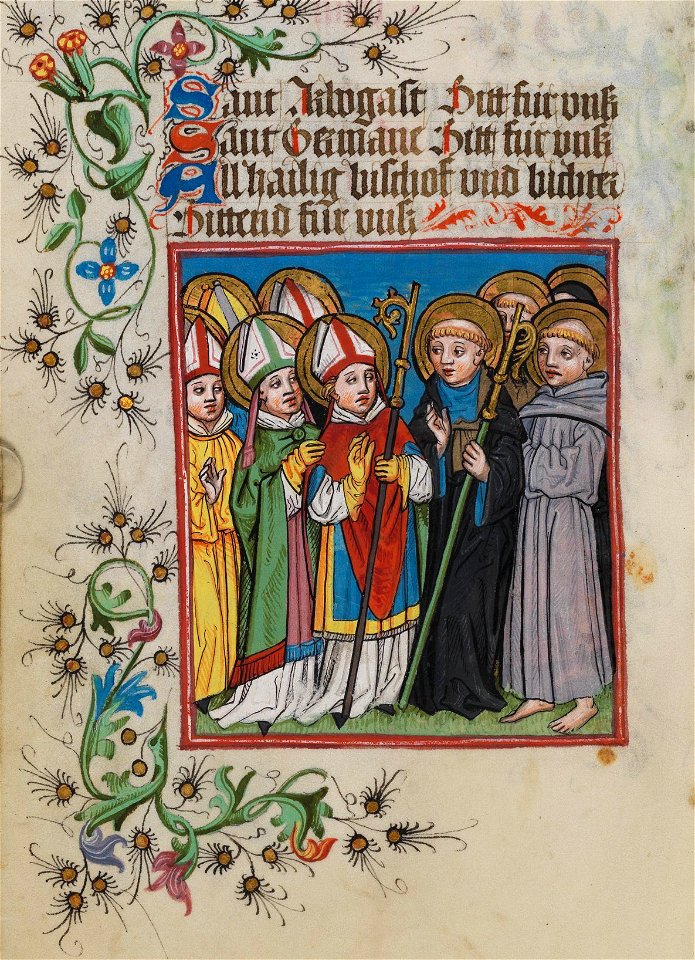 Sant Arbogast Bitt für vnß
Sant Germane Bitt für vnß
All hailig bischof vnd bichter
Bittend für vnß